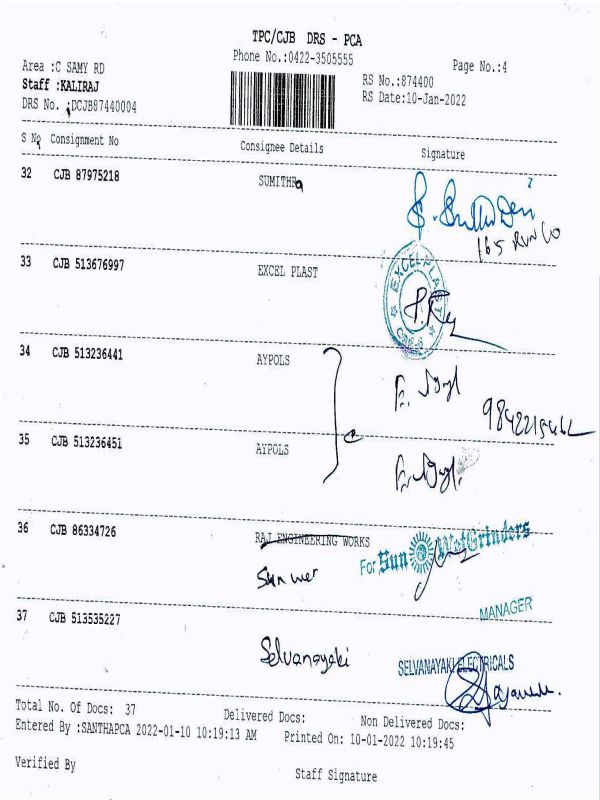 TPC/CJB DRS - PCA
Phone No.:0422-3505555
Page No.:4
Area :C SAMY RD
Staff :KALIRAJ
DRS No. :DCJB87440004
RS No.:874400
RS Date:10-Jan-2022
S No Consignment No Consignee Details Signature
32 CJB 87975218 SUMITHRa
33 CJB 513676997 EXCEL PLAST
EXCEL PLAST
34 CJB 513236441 AYPOLS
35 CJB 513236451 AYPOLS
36 CJB 86334726 RAJ ENGINEERING WORKS
Sun wet
For Sun Wet Grinders
MANAGER
37 CJB 513535227
Selvanayaki
SELVANAYAKI ELECTRICALS
Total No. Of Docs: 37 Delivered Docs: Non Delivered Docs:
Entered By :SANTHAPCA 2022-01-10 10:19:13 AM Printed On: 10-01-2022 10:19:45
Verified By Staff Signature